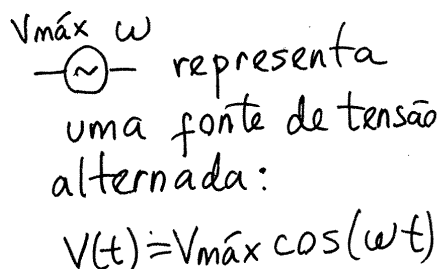 Vmáx ω
~ representa
uma fonte de tensão
alternada:
V(t)=Vmáx cos(ωt)